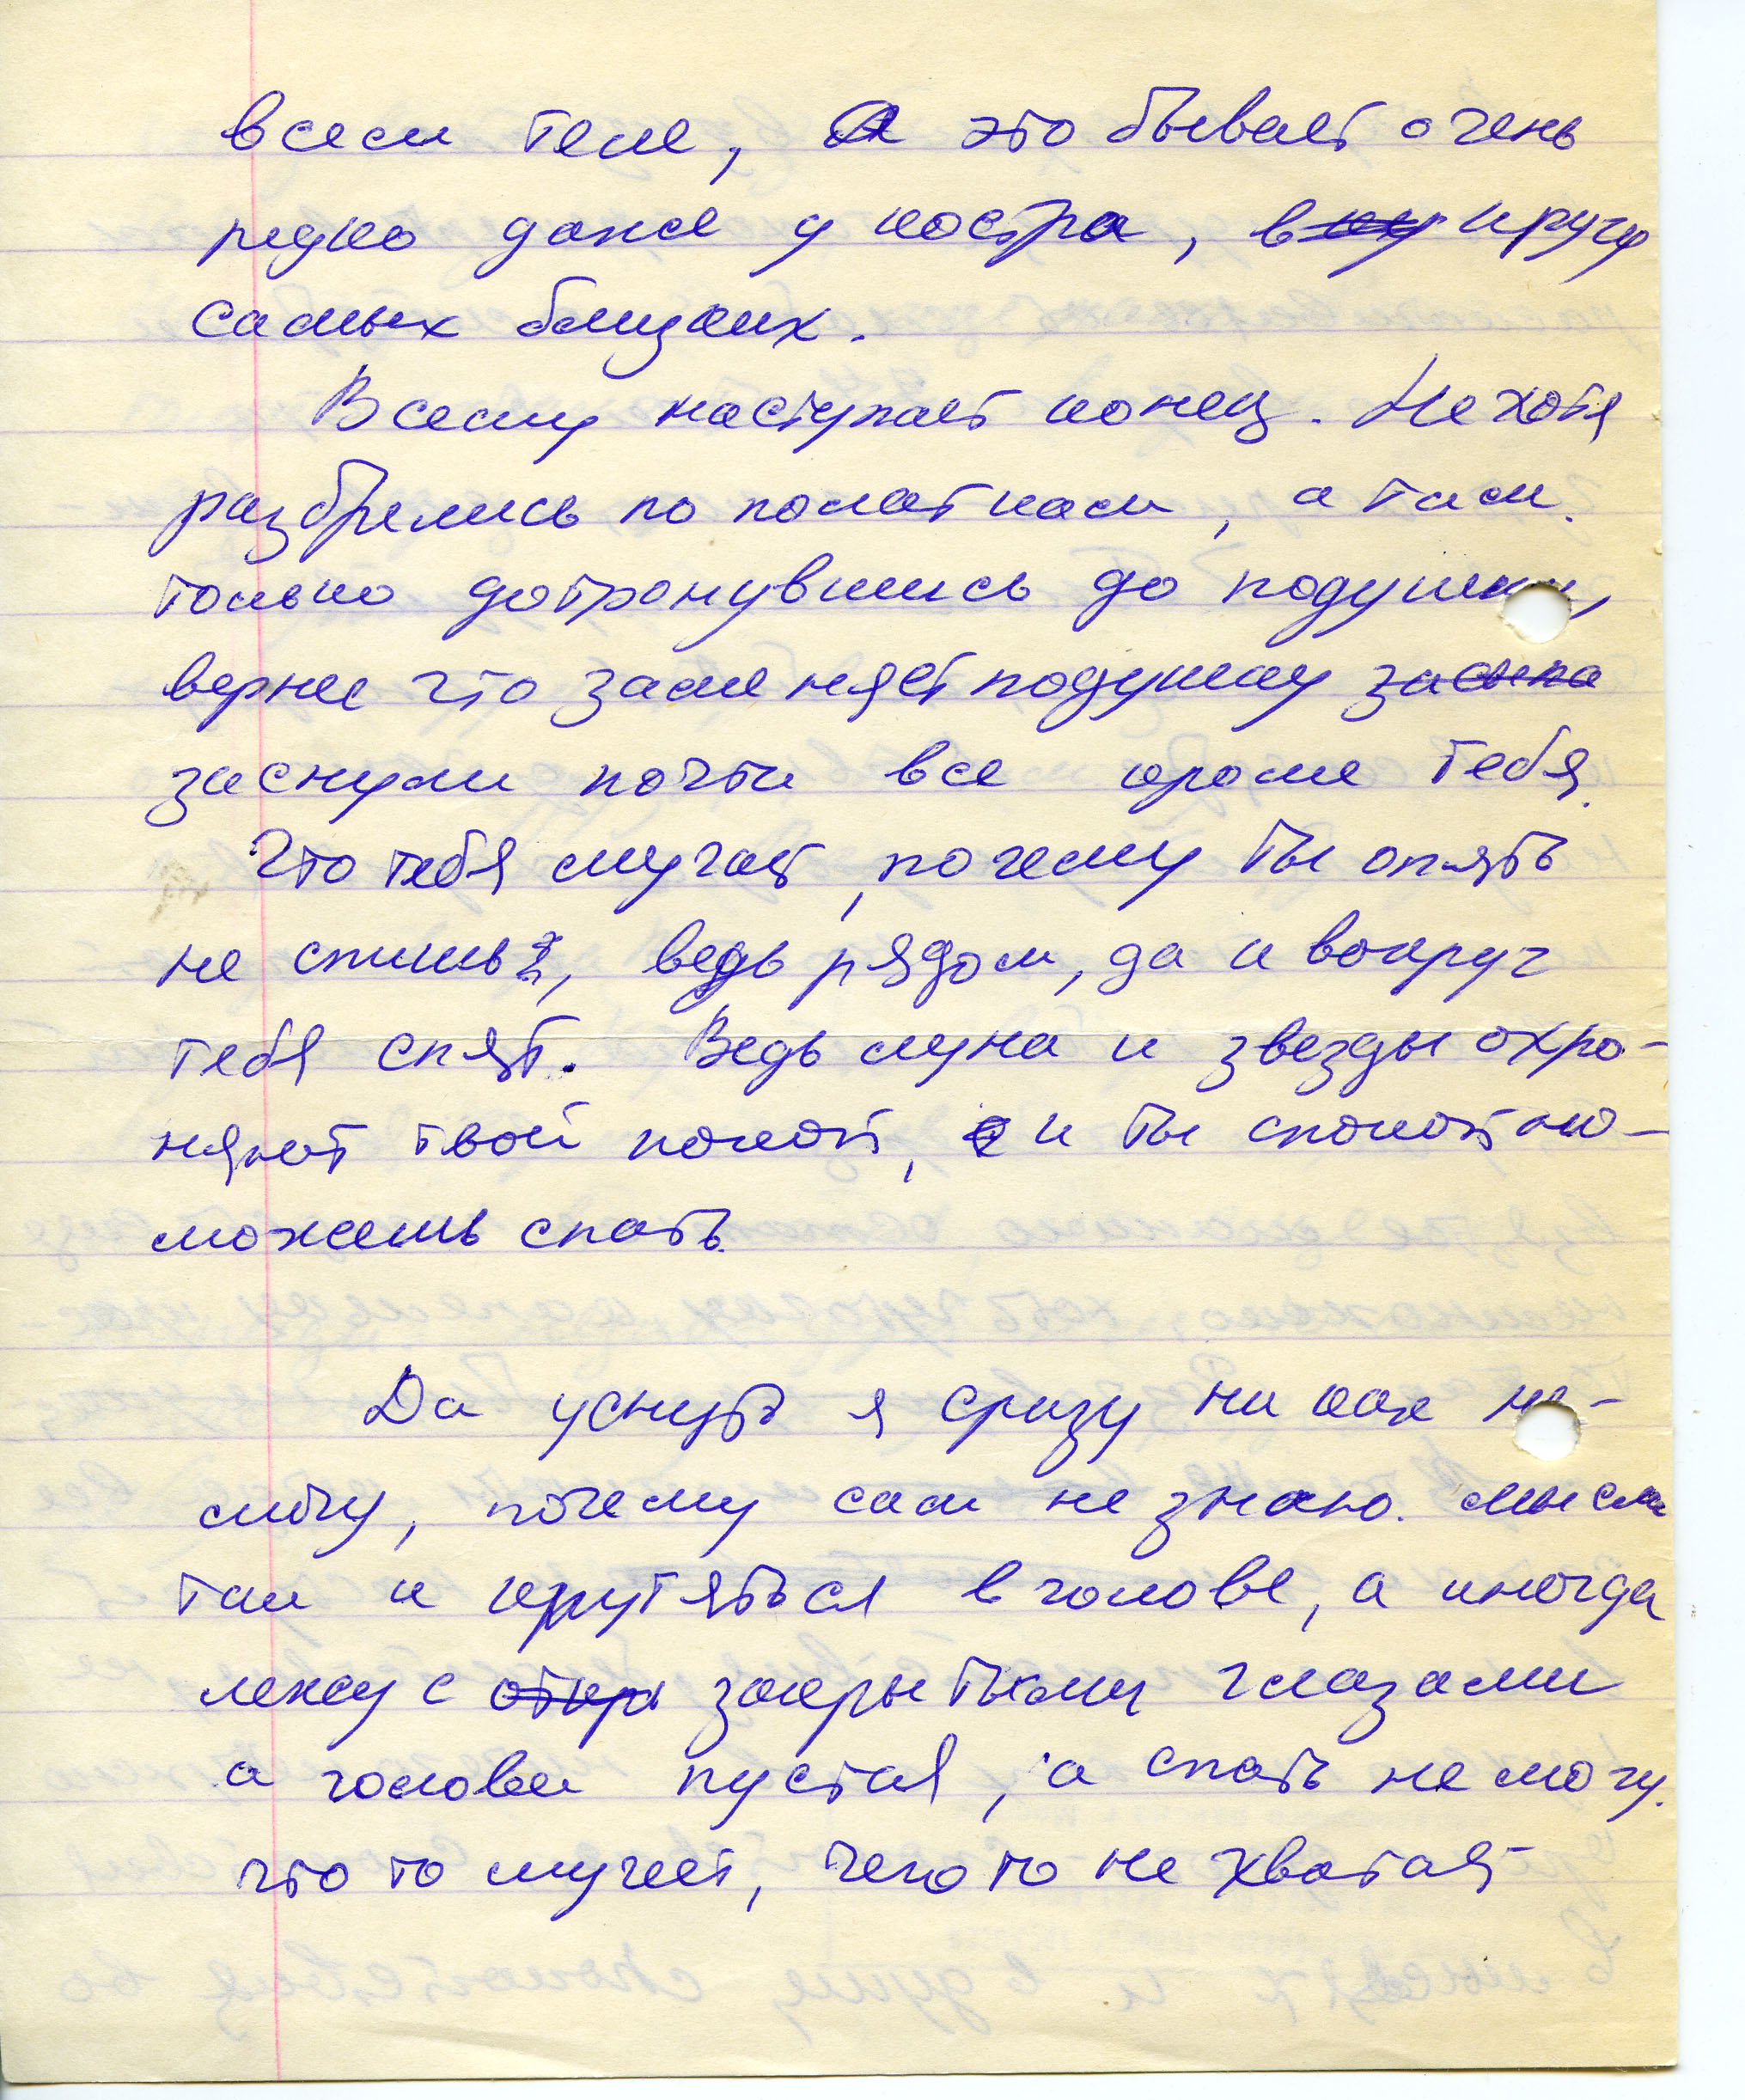 всем теле, А это бывает очень
редко даже у костра, в кругу
самых близких.
Всему наступает конец. Не хотя
разбрелись по палаткам, а там.
только дотронувшись до подушки,
вернее что заменяет подушку засыпа
заснули почти все кроме тебя.
Что тебя мучает, почему ты опять
не спишь, ведь рядом, да и вокруг
тебя спят. Ведь луна и звезды охро-
няют твой покой, и ты спокойно-
можешь спать.
Да уснуть я сразу ни как не-
могу, почему сам не знаю. мысли
так и крутяться в голове, а иногда
лежу с откры закрытыми глазами
а голова пустая, а спать не могу.
что то мучает, чего то не хватает